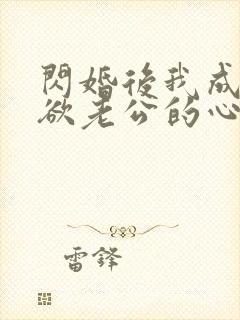 閃婚後我成
欲老公的心
雷鋒